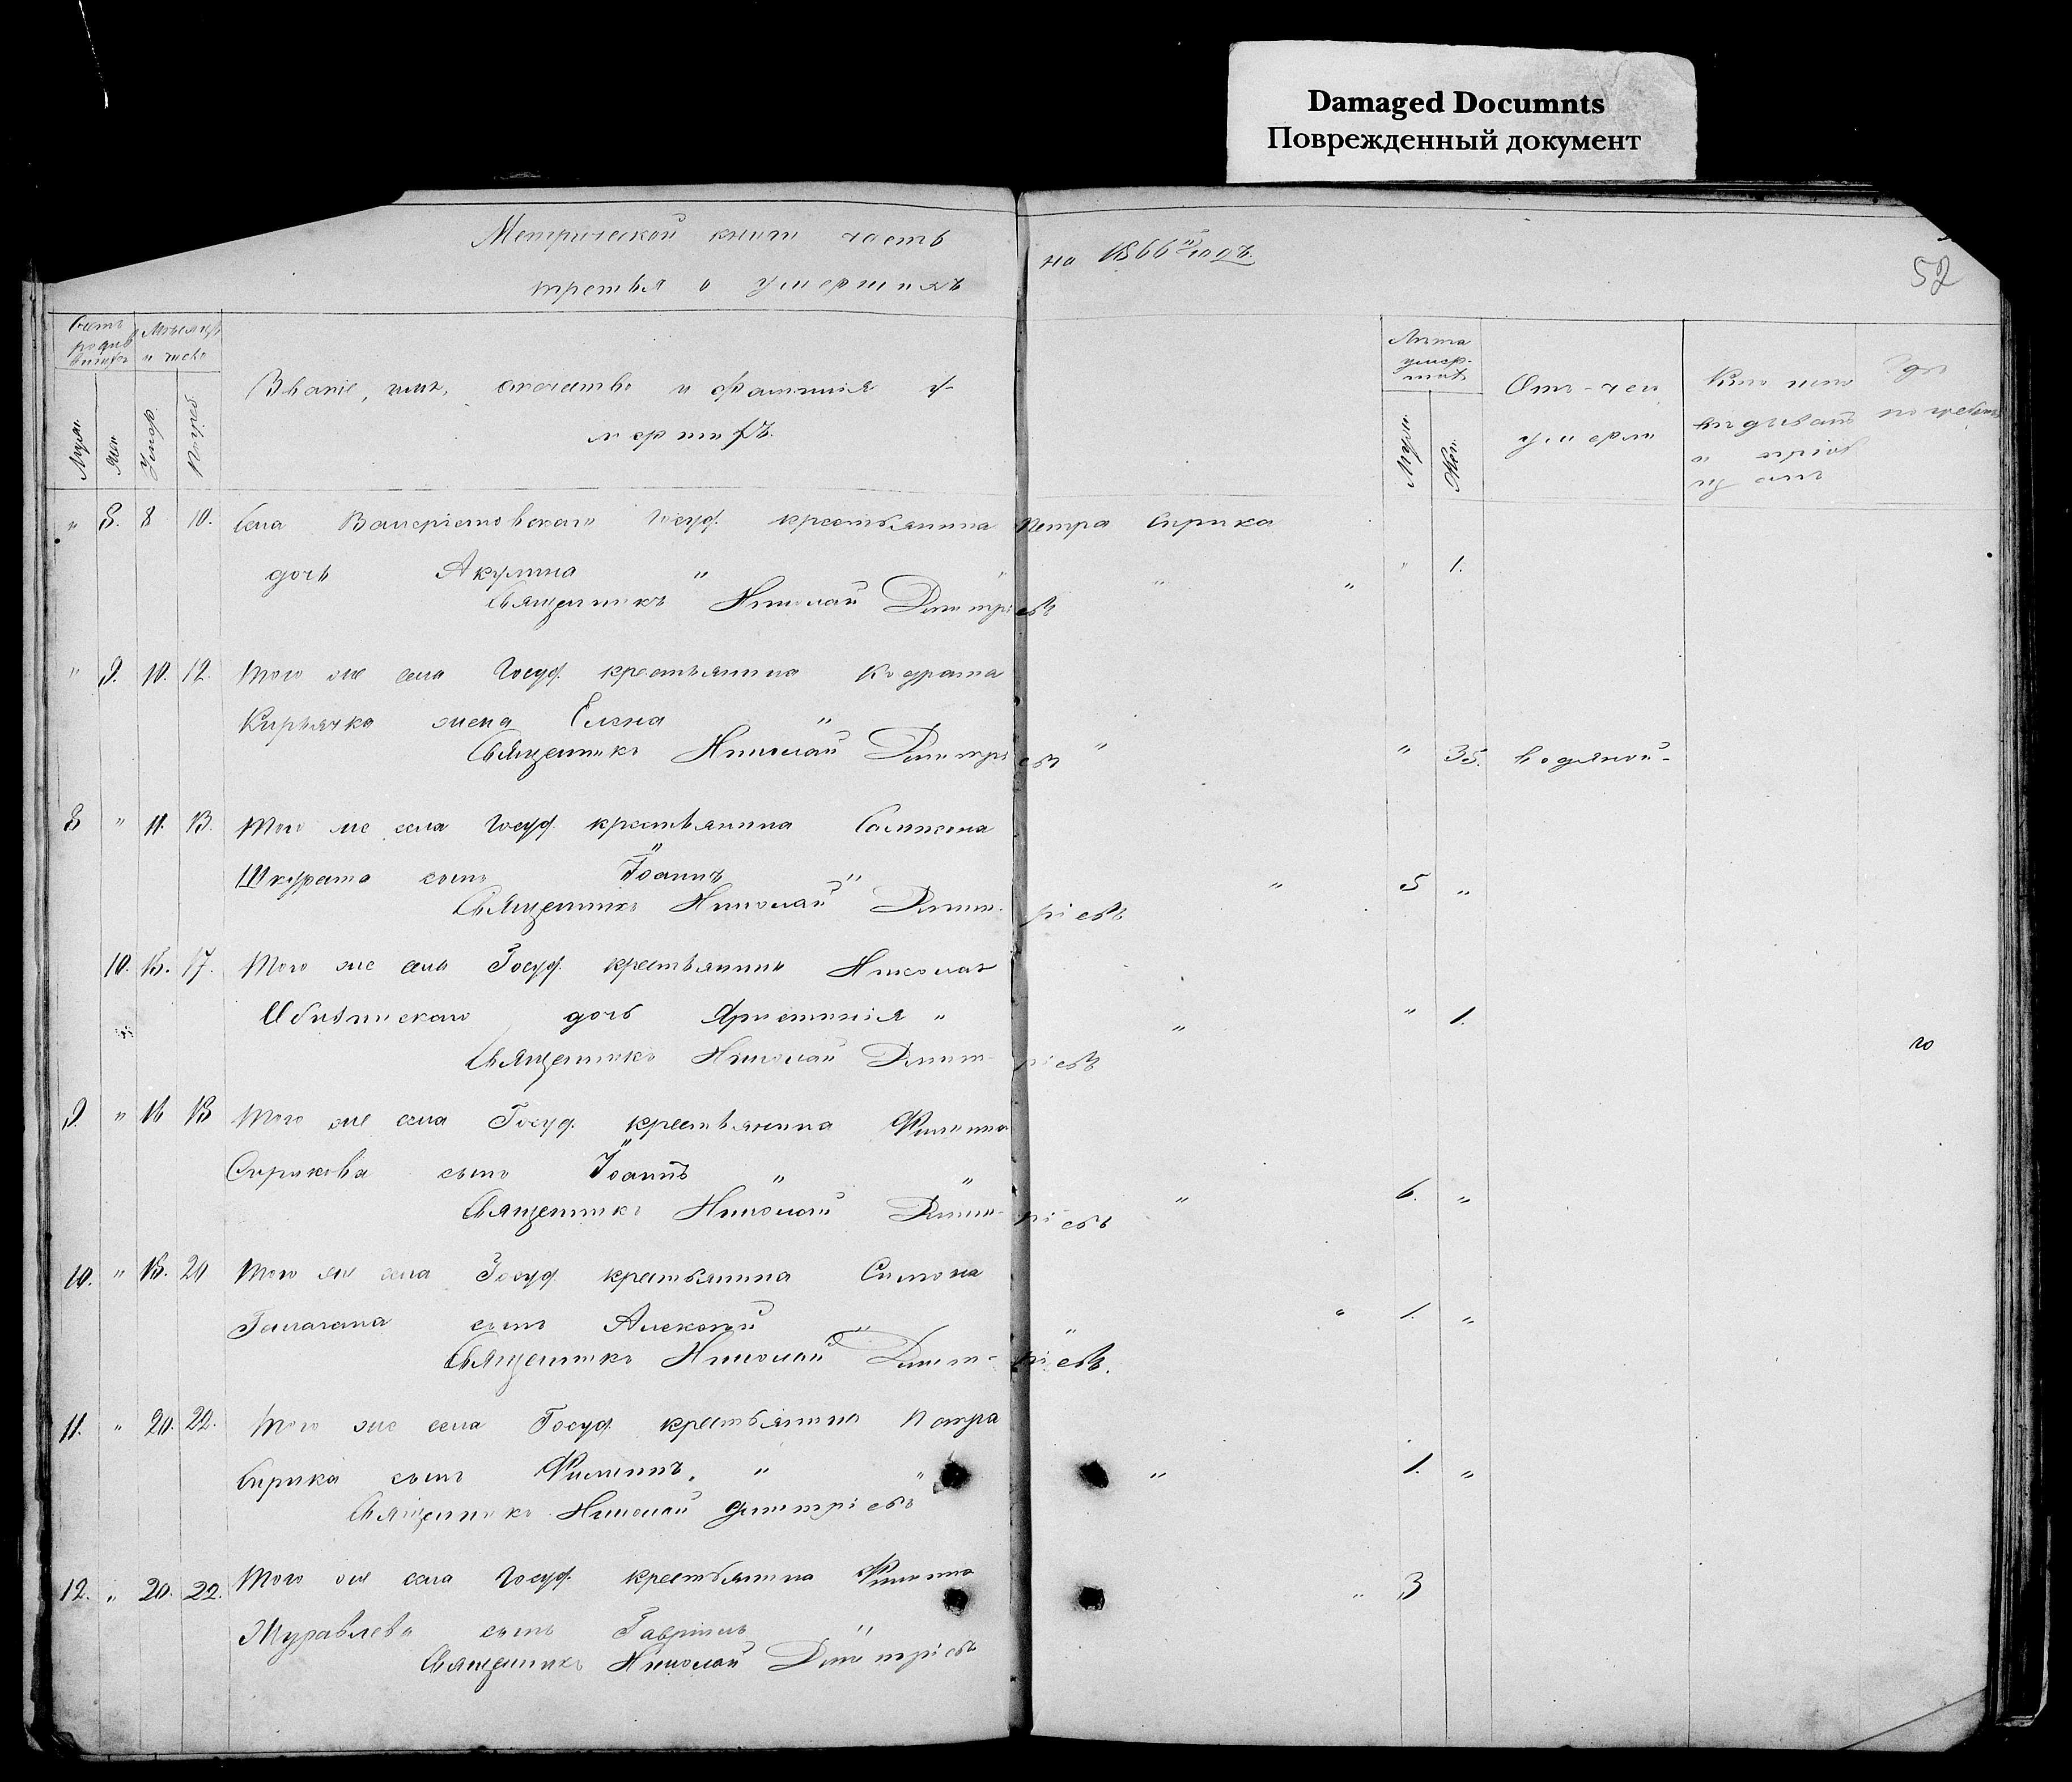 Damaged Documnts
Поврежденный документ
Метрической книги часть на 1866й годъ.
третья о умершихъ
52
Счетъ родив
Мѣсяцъ и число
Званіе, имя, отчество и фамилія у-
мершихъ.
Лѣта умер-
шихъ
Отъ-чего
умерли
Кто ихъ
исповѣдывалъ
и
Гдѣ
погребены
Муж.
Жен.
Умер.
Погреб.
Муж.
Жен.
" 8. 8 10. Села Государ. крестьянина Петра Сирика
дочь Акулина " " " " " 1.
Священникъ Николай Димитріевъ
" 9. 10. 12. Того же села Госуд. крестьянина Кодрата
Кирьячка жена Елена "
Священникъ Николай Димитріевъ " " 35. водяной-
8 " 11. 13. Того же села Госуд. крестьянина
Шкурата сынъ Іоаннъ " " 5 "
Священникъ Николай Димитріевъ
10. 15. 17. Того же села Госуд. крестьянина Николая
дочь " " " 1.
Священникъ Николай Димит-ріевъ
го
9. " 16 18 Того же села Госуд. крестьянина Филиппа
Сирикова сынъ Іоаннъ " " " 6. "
Священникъ Николай Димит-ріевъ
10. " 18. 20 Того же села Госуд. крестьянина Симона
сынъ Алексѣй " " " 1. "
Священникъ Николай Димит-ріевъ.
11. " 20. 22. Того же села Госуд. крестьянина Петра
Сирика сынъ Филиппъ. " " " 1. "
Священникъ Николай Димитріевъ
12. " 20. 22. Того же села Госуд. крестьянина Филиппа " 3
Журавлева сынъ Гавріилъ "
Священникъ Николай Димитріевъ